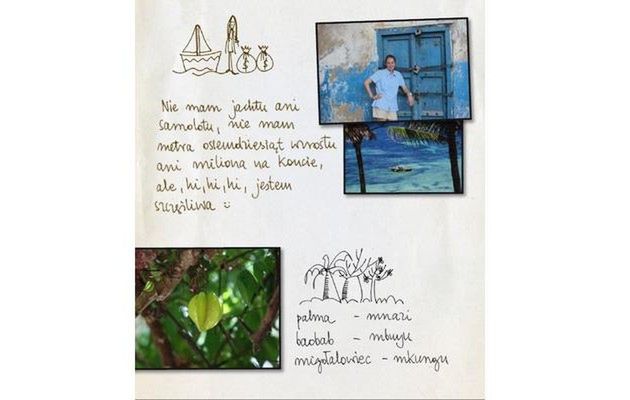 Nie mam jachtu ani
samolotu, nie mam
metra osiemdziesiąt wzrostu
ani miliona na koncie,
ale, hi, hi, hi, jestem
szczęśliwa :)
palma - mnazi
baobab - mbuyu
migdałowiec - mkungu